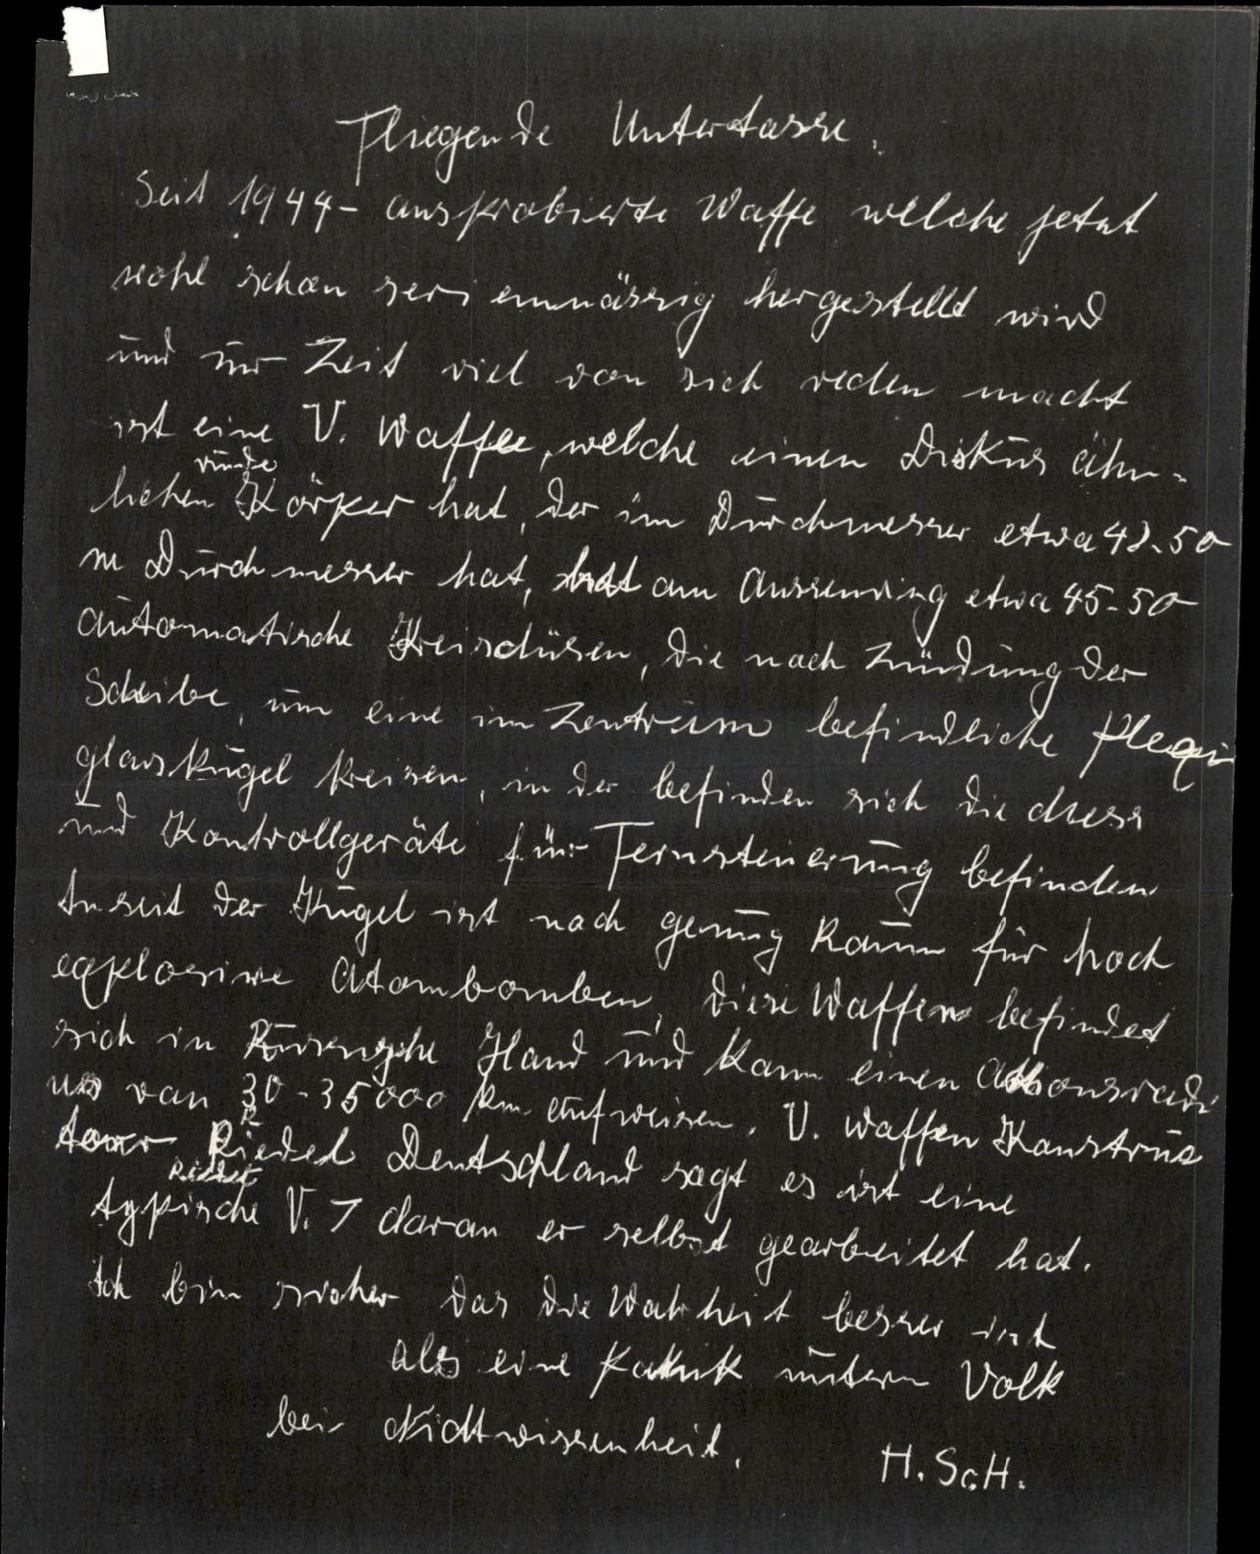 Fliegende Untertasse.
Seit 1944- ausprobierte Waffe welche jetzt
wohl schon serienmässig hergestellt wird
und zur Zeit viel von sich reden macht
ist eine V. Waffe, welche einen Diskus ähn-
lichen runde Körper hat, der im Durchmesser etwa 42-50
m Durchmesser hat, hat am Aussenring etwa 45-50
automatische Kreisdüsen, die nach Zündung der
Scheibe, um eine im Zentrum befindliche Plexi
glaskugel kreisen, in der befinden sich die
und Kontrollgeräte für Fernsteuerung befinden
der Kugel ist noch genug Raum für hoch
explosive Atombomben, diese Waffen befindet
sich in Hand und kann einen Aktionsradi
us von 30-35000 km aufweisen. V. Waffen Konstruk
teur Riedel Deutschland sagt es ist eine
Riedel
typische V. 7 daran er selbst gearbeitet hat.
Ich bin sicher das die Wahrheit besser ist
als eine Panik unterm Volk
bei Nichtwissenheit.
H. Sch.